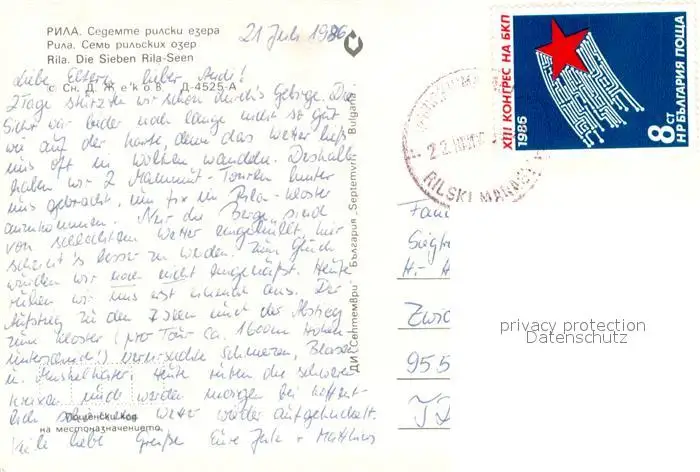 РИЛА. Седемте рилски езера
Рила. Семь рильских озер
Rila. Die Sieben Rila-Seen
21 Juli 1986
с Сн. Д. Жеков Д-4525-А
Liebe Eltern, lieber Andi!
2 Tage stürzten wir schon durch's Gebirge. Die
Sicht war leider noch lange nicht so gut
wie auf der Karte, denn das Wetter ließ
uns oft in Wolken wandeln. Deshalb
haben wir 2 Mammut-Touren hinter
uns gebracht, um fix im Rila-Kloster
anzukommen. Nur die Berge sind
von schlechtem Wetter eingehüllt, hier
scheint's besser zu werden. Zum Glück
wurden wir noch nicht eingenäßt. Heute
ruhen wir uns erst einmal aus. Der
Aufstieg zu den 7 Seen und der Abstieg
zum Kloster (pro Tour ca. 1600m Höhen-
unterschied!) verursachte Schmerzen, Blasen
u. Muskelkater. Heute ruhen die schweren
und werden morgen bei hoffent-
lich schönem Wetter wieder aufgehuckelt.
Viele liebe Grüße Eure Jule + Matthias
Пощенски код
на местоназначението.
ДИ „Септември" България „Septemvri" Bulgaria
XIII КОНГРЕС НА БКП
1986
8 СТ
НР БЪЛГАРИЯ ПОЩА
RILSKI MANAS
Fam
H.-
Zwic
955
privacy protection
Datenschutz